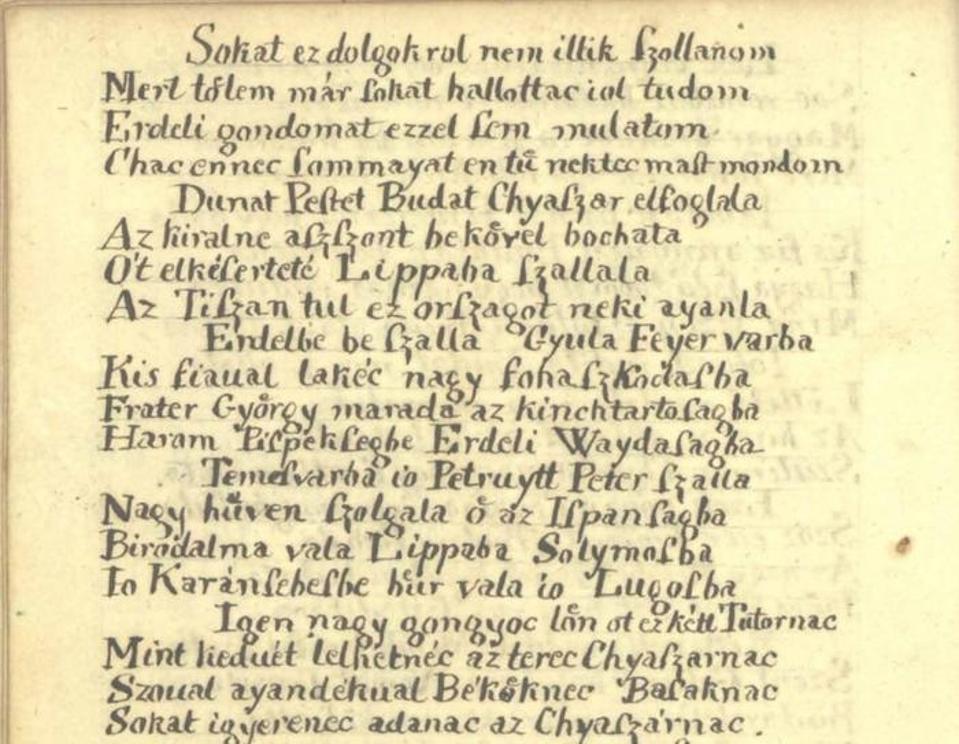 Sokat ez dolgokrol nem illik ſzollanom
Mert tőlem már ſokat hallottac iol tudom
Erdeli gondomat ezzel ſem mulatom
Chac ennec ſommayat en tű nektec maſt mondom
Dunat Peſtet Budat Chyaſzar elfoglala
Az kiralne aſzſzont bekővel bochata
Ót elkéſerteté Lippaba ſzallala
Az Tiſzan tul ez orſzagot neki ayanla
Erdelbe be ſzalla Gyula Feyer varba
Kis fiaual lakéc nagy fohaſzkodaſba
Frater György marada az kinchtartoſagba
Haram Piſpekſegbe Erdeli Waydaſagba
Temeſvarba io Petruytt Peter ſzalla
Nagy hűven ſzolgala ő az Iſpanſagba
Birodalma vala Lippaba Solymoſba
Io Karánſebeſbe hűr vala io Lugoſba
Igen nagy gongyoc lőn ot ez kétt Tutornac
Mint keduét lelhetnéc az terec Chyaſzarnac
Szoual ayandékual Békőknec Baſaknac
Sokat igyerenec adanac az Chyaſzárnac.